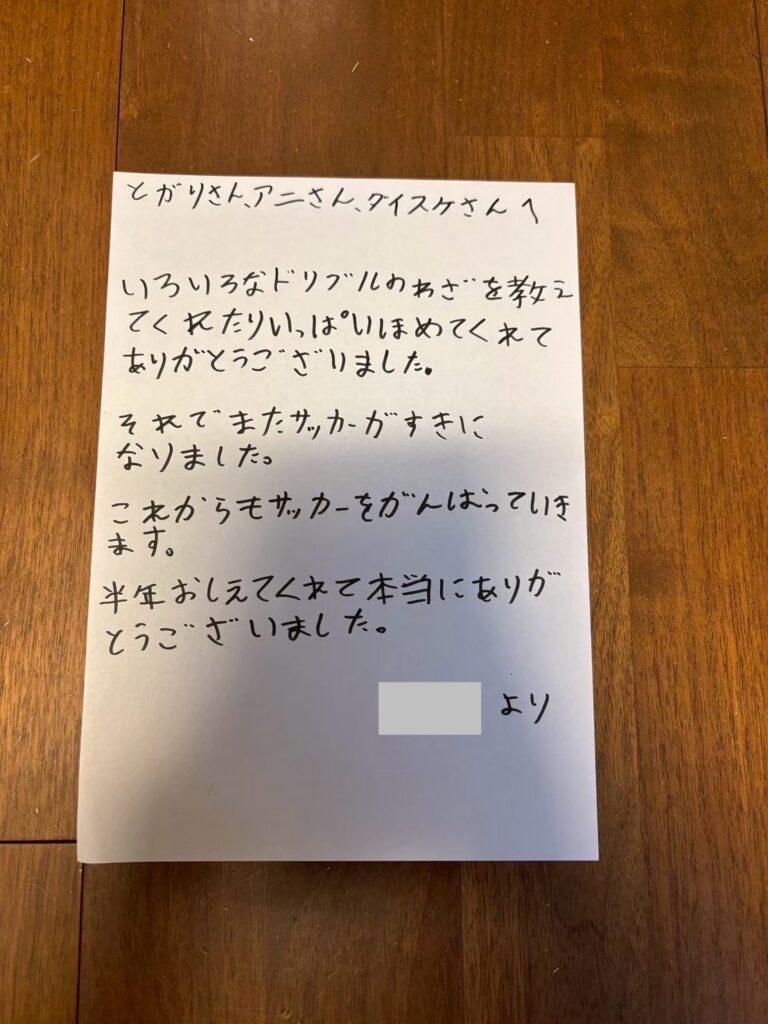 とがりさん、アニさん、ダイスケさんへ
いろいろなドリブルのわざを教え
てくれたりいっぱいほめてくれて
ありがとうございました。
それでまたサッカーがすきに
なりました。
これからもサッカーをがんばっていき
ます。
半年おしえてくれて本当にありが
とうございました。
より